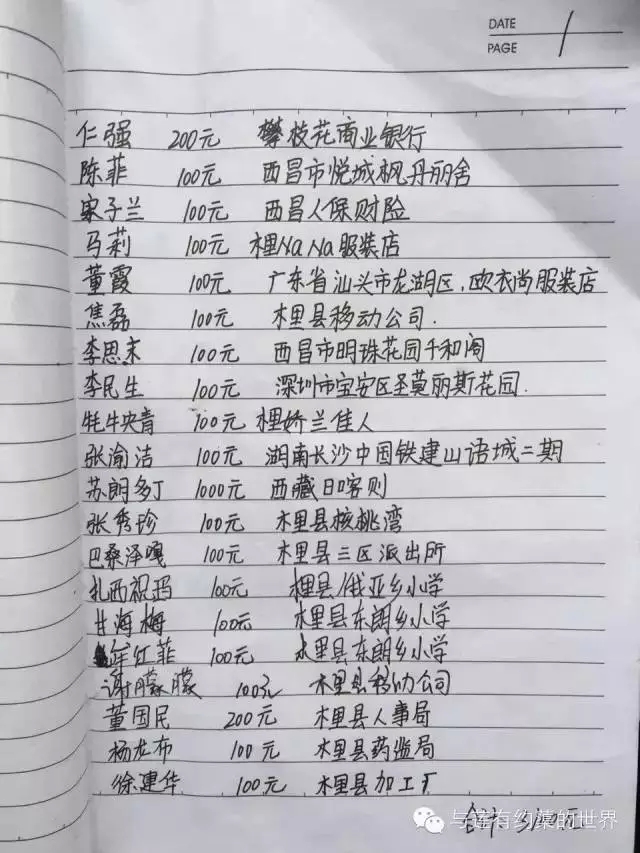 DATE
PAGE 1
仁强 200元 攀枝花商业银行
陈菲 100元 西昌市悦城枫丹丽舍
宋子兰 100元 西昌人保财险
马莉 100元 木里NaNa服装店
董霞 100元 广东省汕头市龙湖区,欧衣尚服装店
焦磊 100元 木里县移动公司.
李思末 100元 西昌市明珠花园千和阁
李民生 100元 深圳市宝安区圣莫丽斯花园.
牦牛央青 100元 木里娇兰佳人
张渝洁 100元 湖南长沙中国铁建山语城二期
苏朗多丁 1000元 西藏日喀则
张秀珍 100元 木里县核桃湾
巴桑泽嘎 100元 木里县三区派出所
扎西祝玛 100元 木里县俄亚乡小学
甘海梅 100元 木里县东朗乡小学
牟红菲 100元 木里县东朗乡小学
谢朦朦 100元 木里县移动公司
董国民 200元 木里县人事局
杨龙布 100元 木里县药监局
徐建华 100元 木里县加工厂
合计: 3100元
与莲有约藻的世界